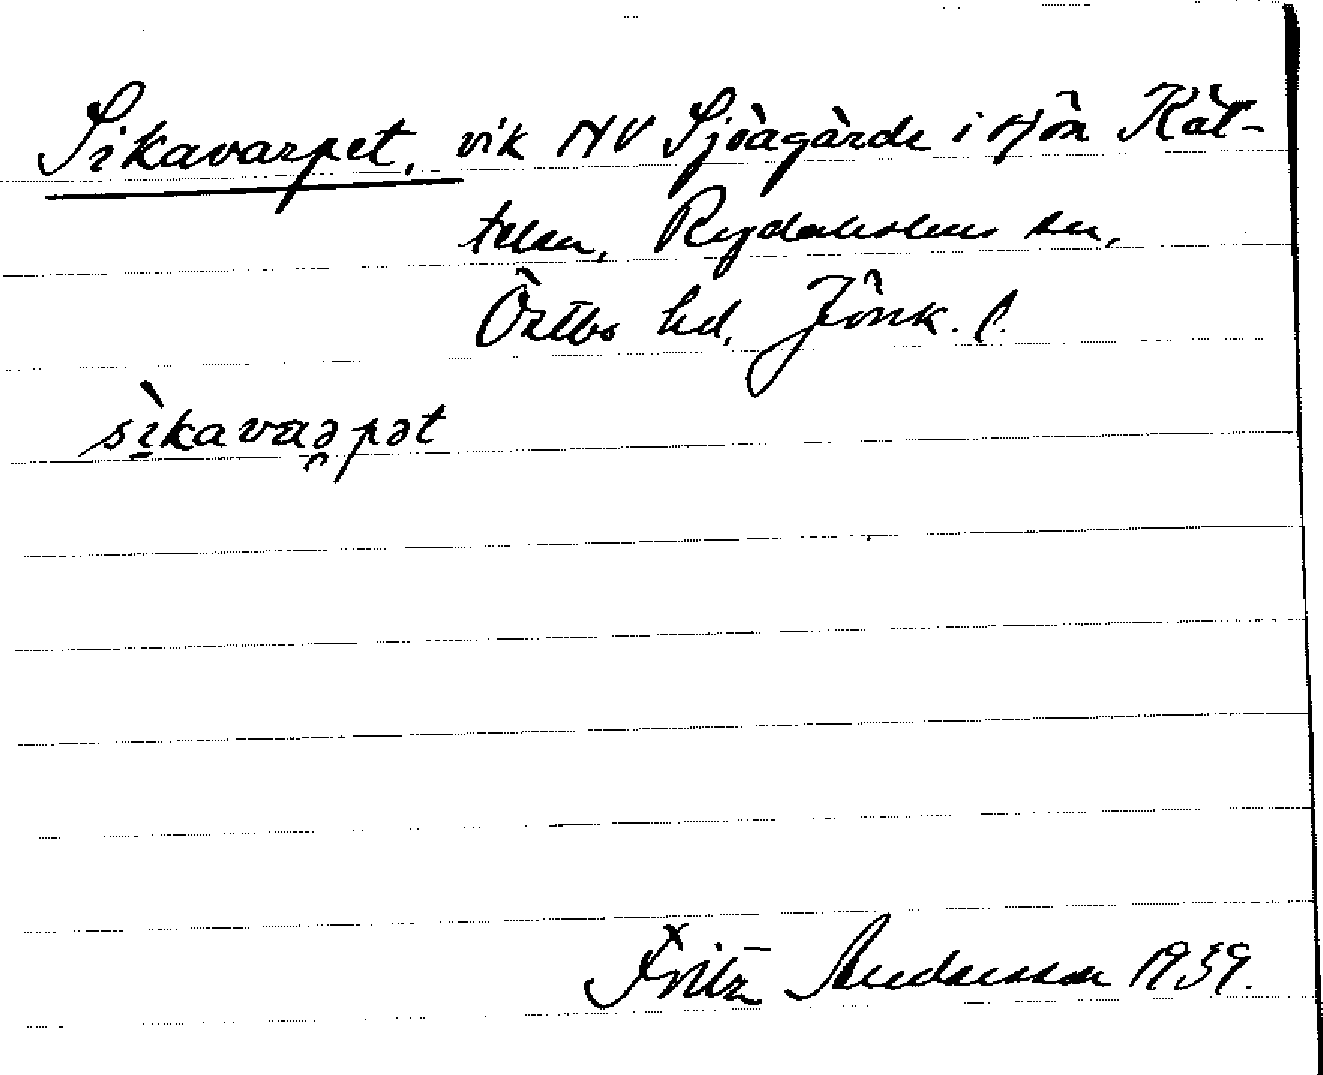 Sikavarpet, vik NV Sjöagärde i sjön Rät-
teln, Rydaholms sn,
Östbo hd, Jönk. l.
sìkavaə̯pət
Fritz Andersson 1939.